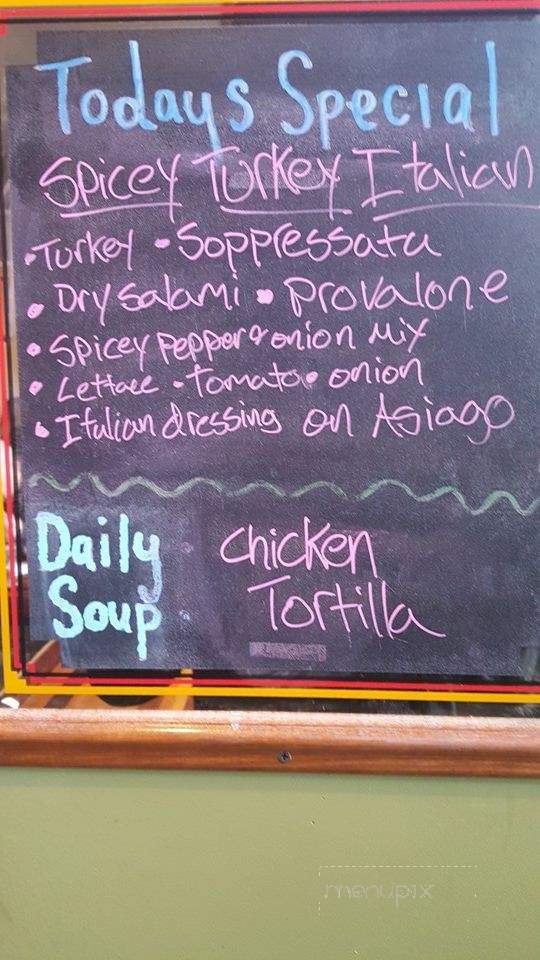 Todays Special
Spicey Turkey Italian
• Turkey • Soppressata
• Dry Salami • Provalone
• Spicey Pepper & onion Mix
• Lettace • Tomato • onion
• Italian dressing on Asiago
Daily Soup
Chicken Tortilla
menupix